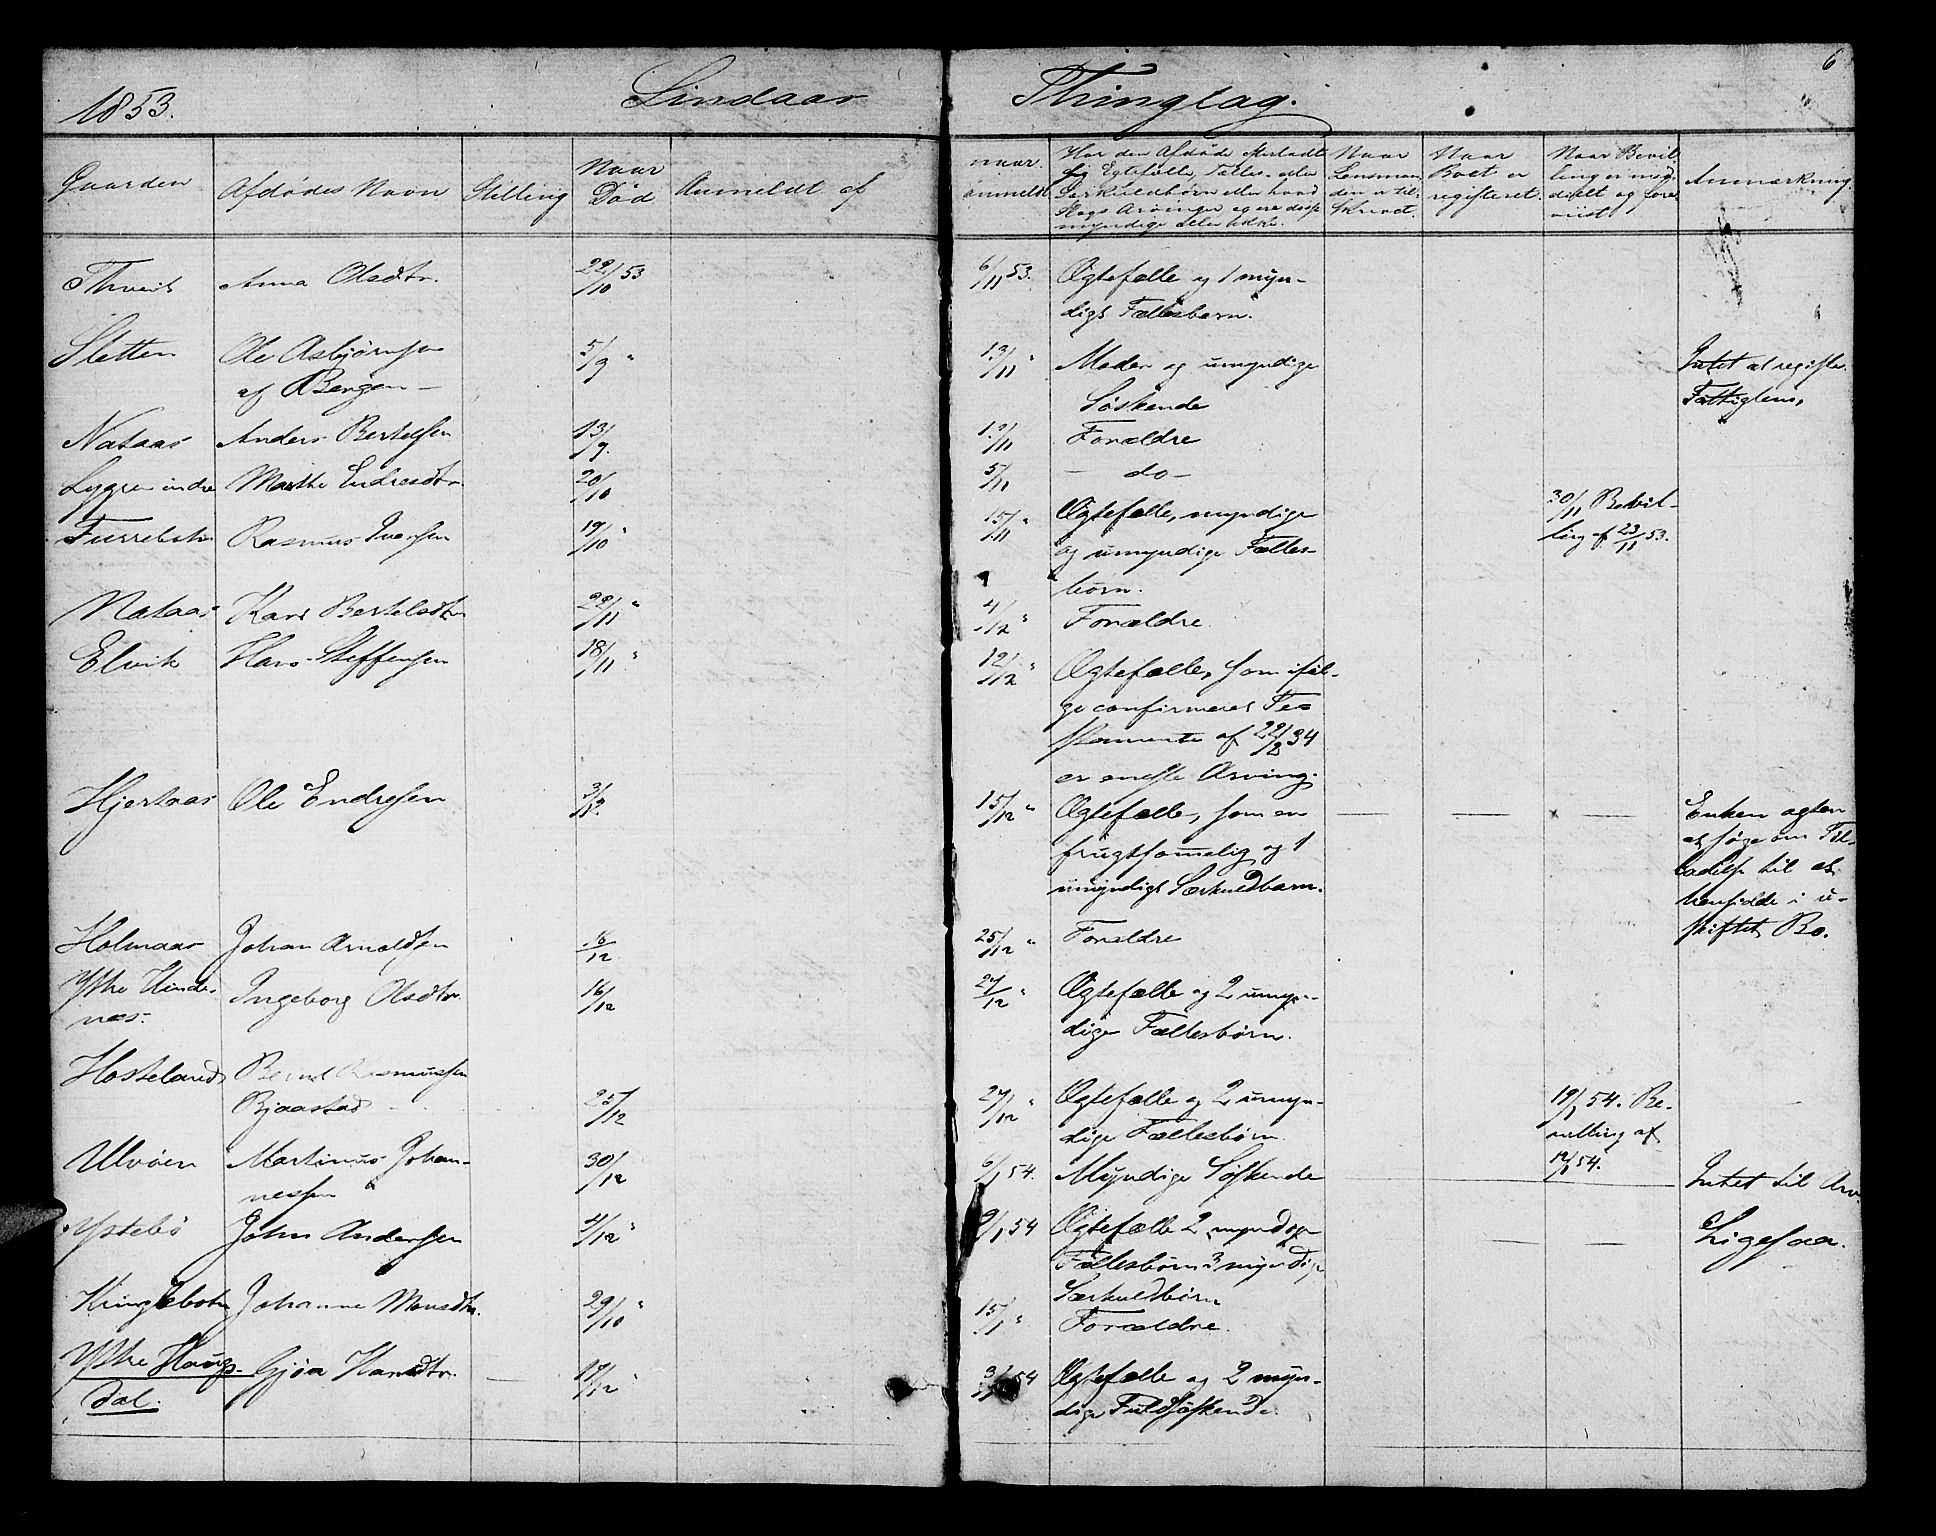 6
1853. Lindaas Thinglag.
Gaarden | Afdødes Navn | Stilling | Naar Død | Anmeldt af | naar anmeldt | Har den Afdøde efterladt sig Egtefælle, Fælles- eller Særkuldbørn eller hvad Slags Arvinger, og ere disse myndige eller ikke. | Naar Lensmanden er tilskrevet. | Naar Boet er registreret. | Naar Bevilling er meddeelt og foreviist | Anmærkning.
Thveit | Anna Olsdtr. | 22/10 53 | 6/11 53. | Ægtefælle og 1 myn-
digt Fællesbarn.
Sletten | Ole Asbjørnsen | 5/9 " | 13/11 " | Moder og umyndige | Intet at registre.
af Bergen — | Søskende | Fattiglem,
Nataas | Anders Bertelsen | 13/9. | 12/11 | Forældre
Lygre indre | Marthe Endresdtr | 20/10 | 5/11 | — do —
Furrebotn | Rasmus Iversen | 19/10 " | 15/11 " | Ægtefælle, myndige | 30/11 Bevil-
og umyndige Fælles- | ling af 23/11 53.
børn.
Nataas | Kari Bertelsdtr | 22/11 " | 4/12 " | Forældre.
Elvik | Hans Steffensen | 18/11 " | 12/12 " | Ægtefælle, som iføl-
ge confirmeret Te-
stamente af 22/8 34
er eneste Arving.
Hjertaas | Ole Endresen | 3/12. | 15/12 " | Ægtefælle, som er | — | — | — | Enken agter
frugtsommelig og 1 | at søge om Til-
umyndigt Særkuldbarn. | ladelse til at
hensidde i u-
skiftet Bo.
Holmaas | Johan Arnoldsen | 16/12 | 25/12 " | Forældre
Ytre Hinde- | Ingeborg Olsdtr | 16/12 | 27/12 " | Ægtefælle og 2 umyn-
næs. | dige Fællesbørn.
Hosteland | Bernt Rasmussen
Bjaastad | 25/12 | 27/12 " | Ægtefælle og 2 umyn- | 19/1 54. Be-
dige Fællesbørn | villing af
12/1 54.
Ulvøen | Martinus Johan- | 30/12 | 6/1 54. | Myndige Søskende | Intet til Arv
nessen
Ystebø | John Andersen | 4/12 " | 9/1 54 | Ægtefælle 2 myndige | — | — | Ligesaa.
Fællesbørn 3 myndige
Særkuldbørn
Kringlebotn | Johanne Monsdtr. | 29/10 " | 15/1 " | Forældre.
Ytre Haugs- | Gjøa Hansdtr. | — | 17/12 " | 54 | Ægtefælle og 2 myn-
dal. | dige Fuldsøskende.